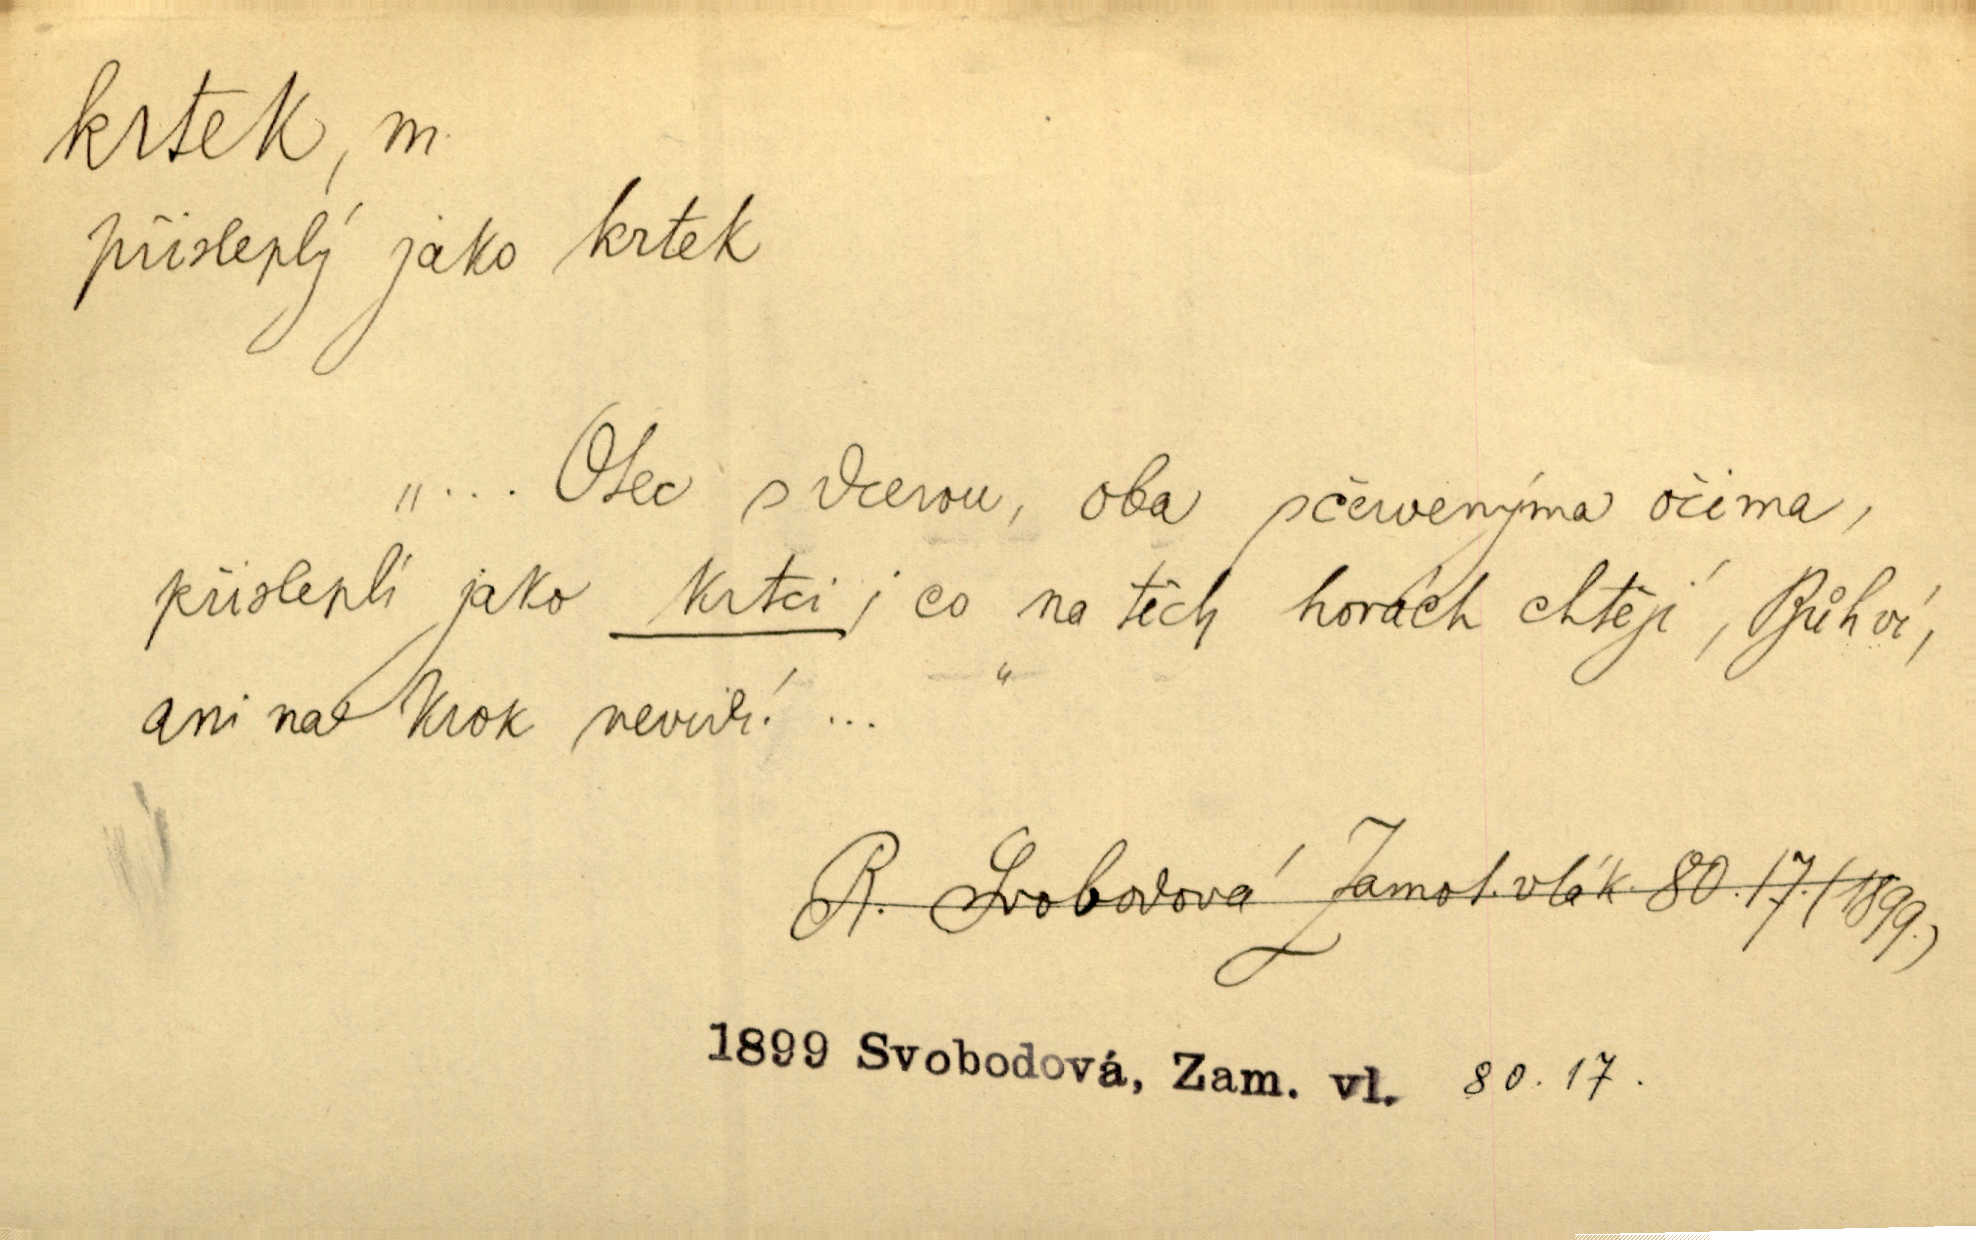 krtek, m.
přisleplý jako krtek
„... Otec s dcerou, oba sčervenýma očima,
přisleplí jako krtci; co na těch horách chtějí, Bůhví,
ani na krok nevidí! ... “
R. Svobodová Zamot. vlák. 80.17. (1899.)
1899 Svobodová, Zam. vl. 80.17.